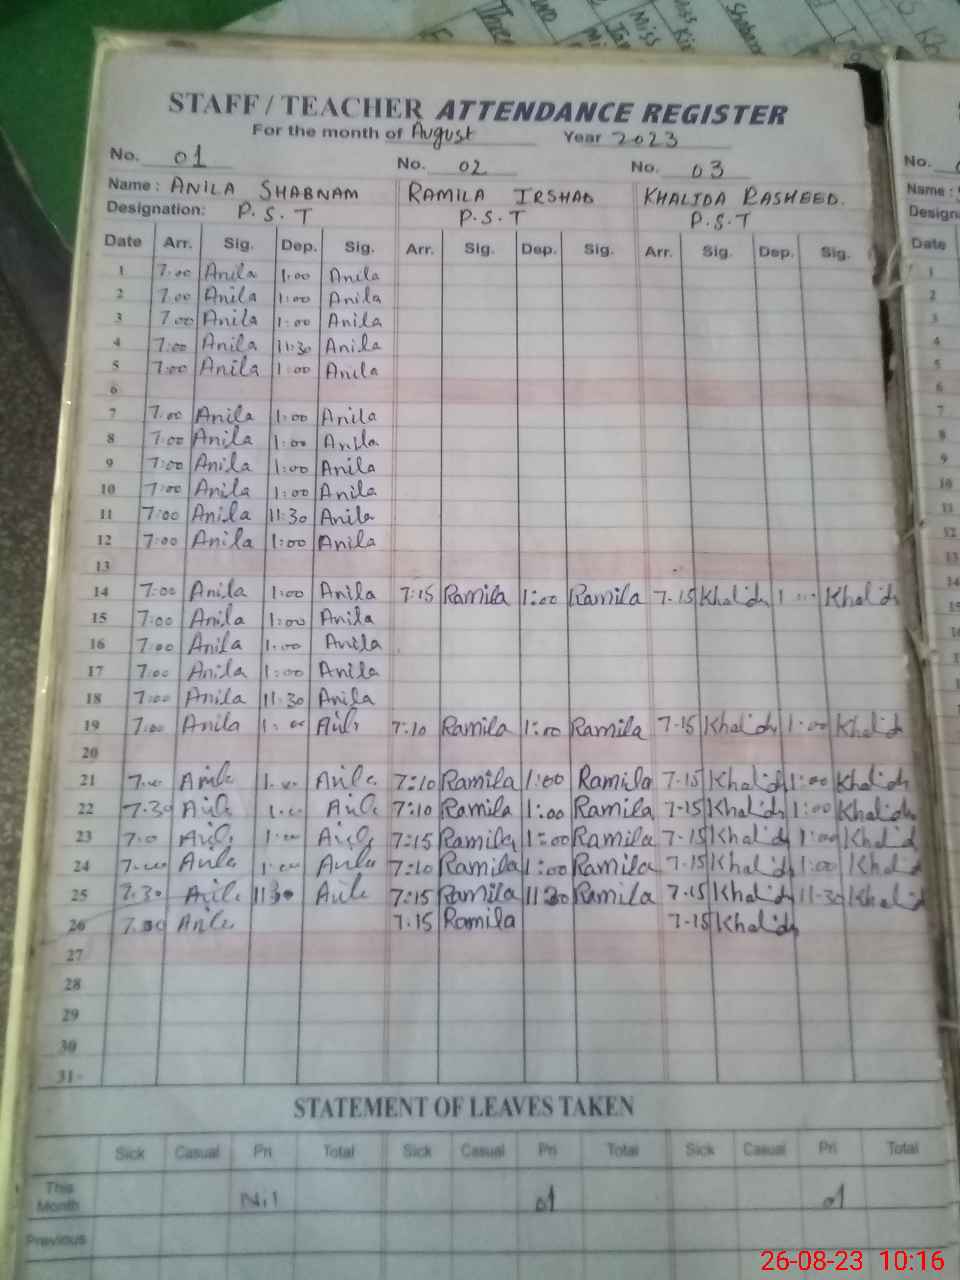 STAFF / TEACHER ATTENDANCE REGISTER
For the month of August Year 2023
No. 01 No. 02 No. 03
Name : ANILA SHABNAM RAMILA IRSHAD KHALIDA RASHEED.
Designation: P.S.T P.S.T P.S.T
Date Arr. Sig. Dep. Sig. Arr. Sig. Dep. Sig. Arr. Sig. Dep. Sig.
1 7:00 Anila 1:00 Anila
2 7:00 Anila 1:00 Anila
3 7:00 Anila 1:00 Anila
4 7:00 Anila 11:30 Anila
5 7:00 Anila 1:00 Anila
6
7 7:00 Anila 1:00 Anila
8 7:00 Anila 1:00 Anila
9 7:00 Anila 1:00 Anila
10 7:00 Anila 1:00 Anila
11 7:00 Anila 11:30 Anila
12 7:00 Anila 1:00 Anila
13
14 7:00 Anila 1:00 Anila 7:15 Ramila 1:00 Ramila 7-15 Khalida Khalida
15 7:00 Anila 1:00 Anila
16 7:00 Anila 1:00 Anila
17 7:00 Anila 1:00 Anila
18 7:00 Anila 11:30 Anila
19 7:00 Anila 1:00 Anila 7:10 Ramila 1:00 Ramila 7-15 Khalida 1:00 Khalida
20
21 7:00 Anila 1:00 Anila 7:10 Ramila 1:00 Ramila 7-15 Khalida 1:00 Khalida
22 7-30 Anila 1:00 Anila 7:10 Ramila 1:00 Ramila 7-15 Khalida 1:00 Khalida
23 Anila 1:00 Anila 7:15 Ramila 1:00 Ramila 7-15 Khalida 1:00 Khalida
24 7:00 Anila 1:00 Anila 7:10 Ramila 1:00 Ramila 7-15 Khalida 1:00 Khalida
25 7.30 Anila 1130 Anila 7:15 Ramila 11:30 Ramila 7-15 Khalida 11-30 Khalida
26 Anila 7:15 Ramila 7-15 Khalida
27
28
29
30
31
STATEMENT OF LEAVES TAKEN
Sick Casual Pri Total Sick Casual Pri Total Sick Casual Pri Total
This Month Nil 01 01
Previous
26-08-23 10:16